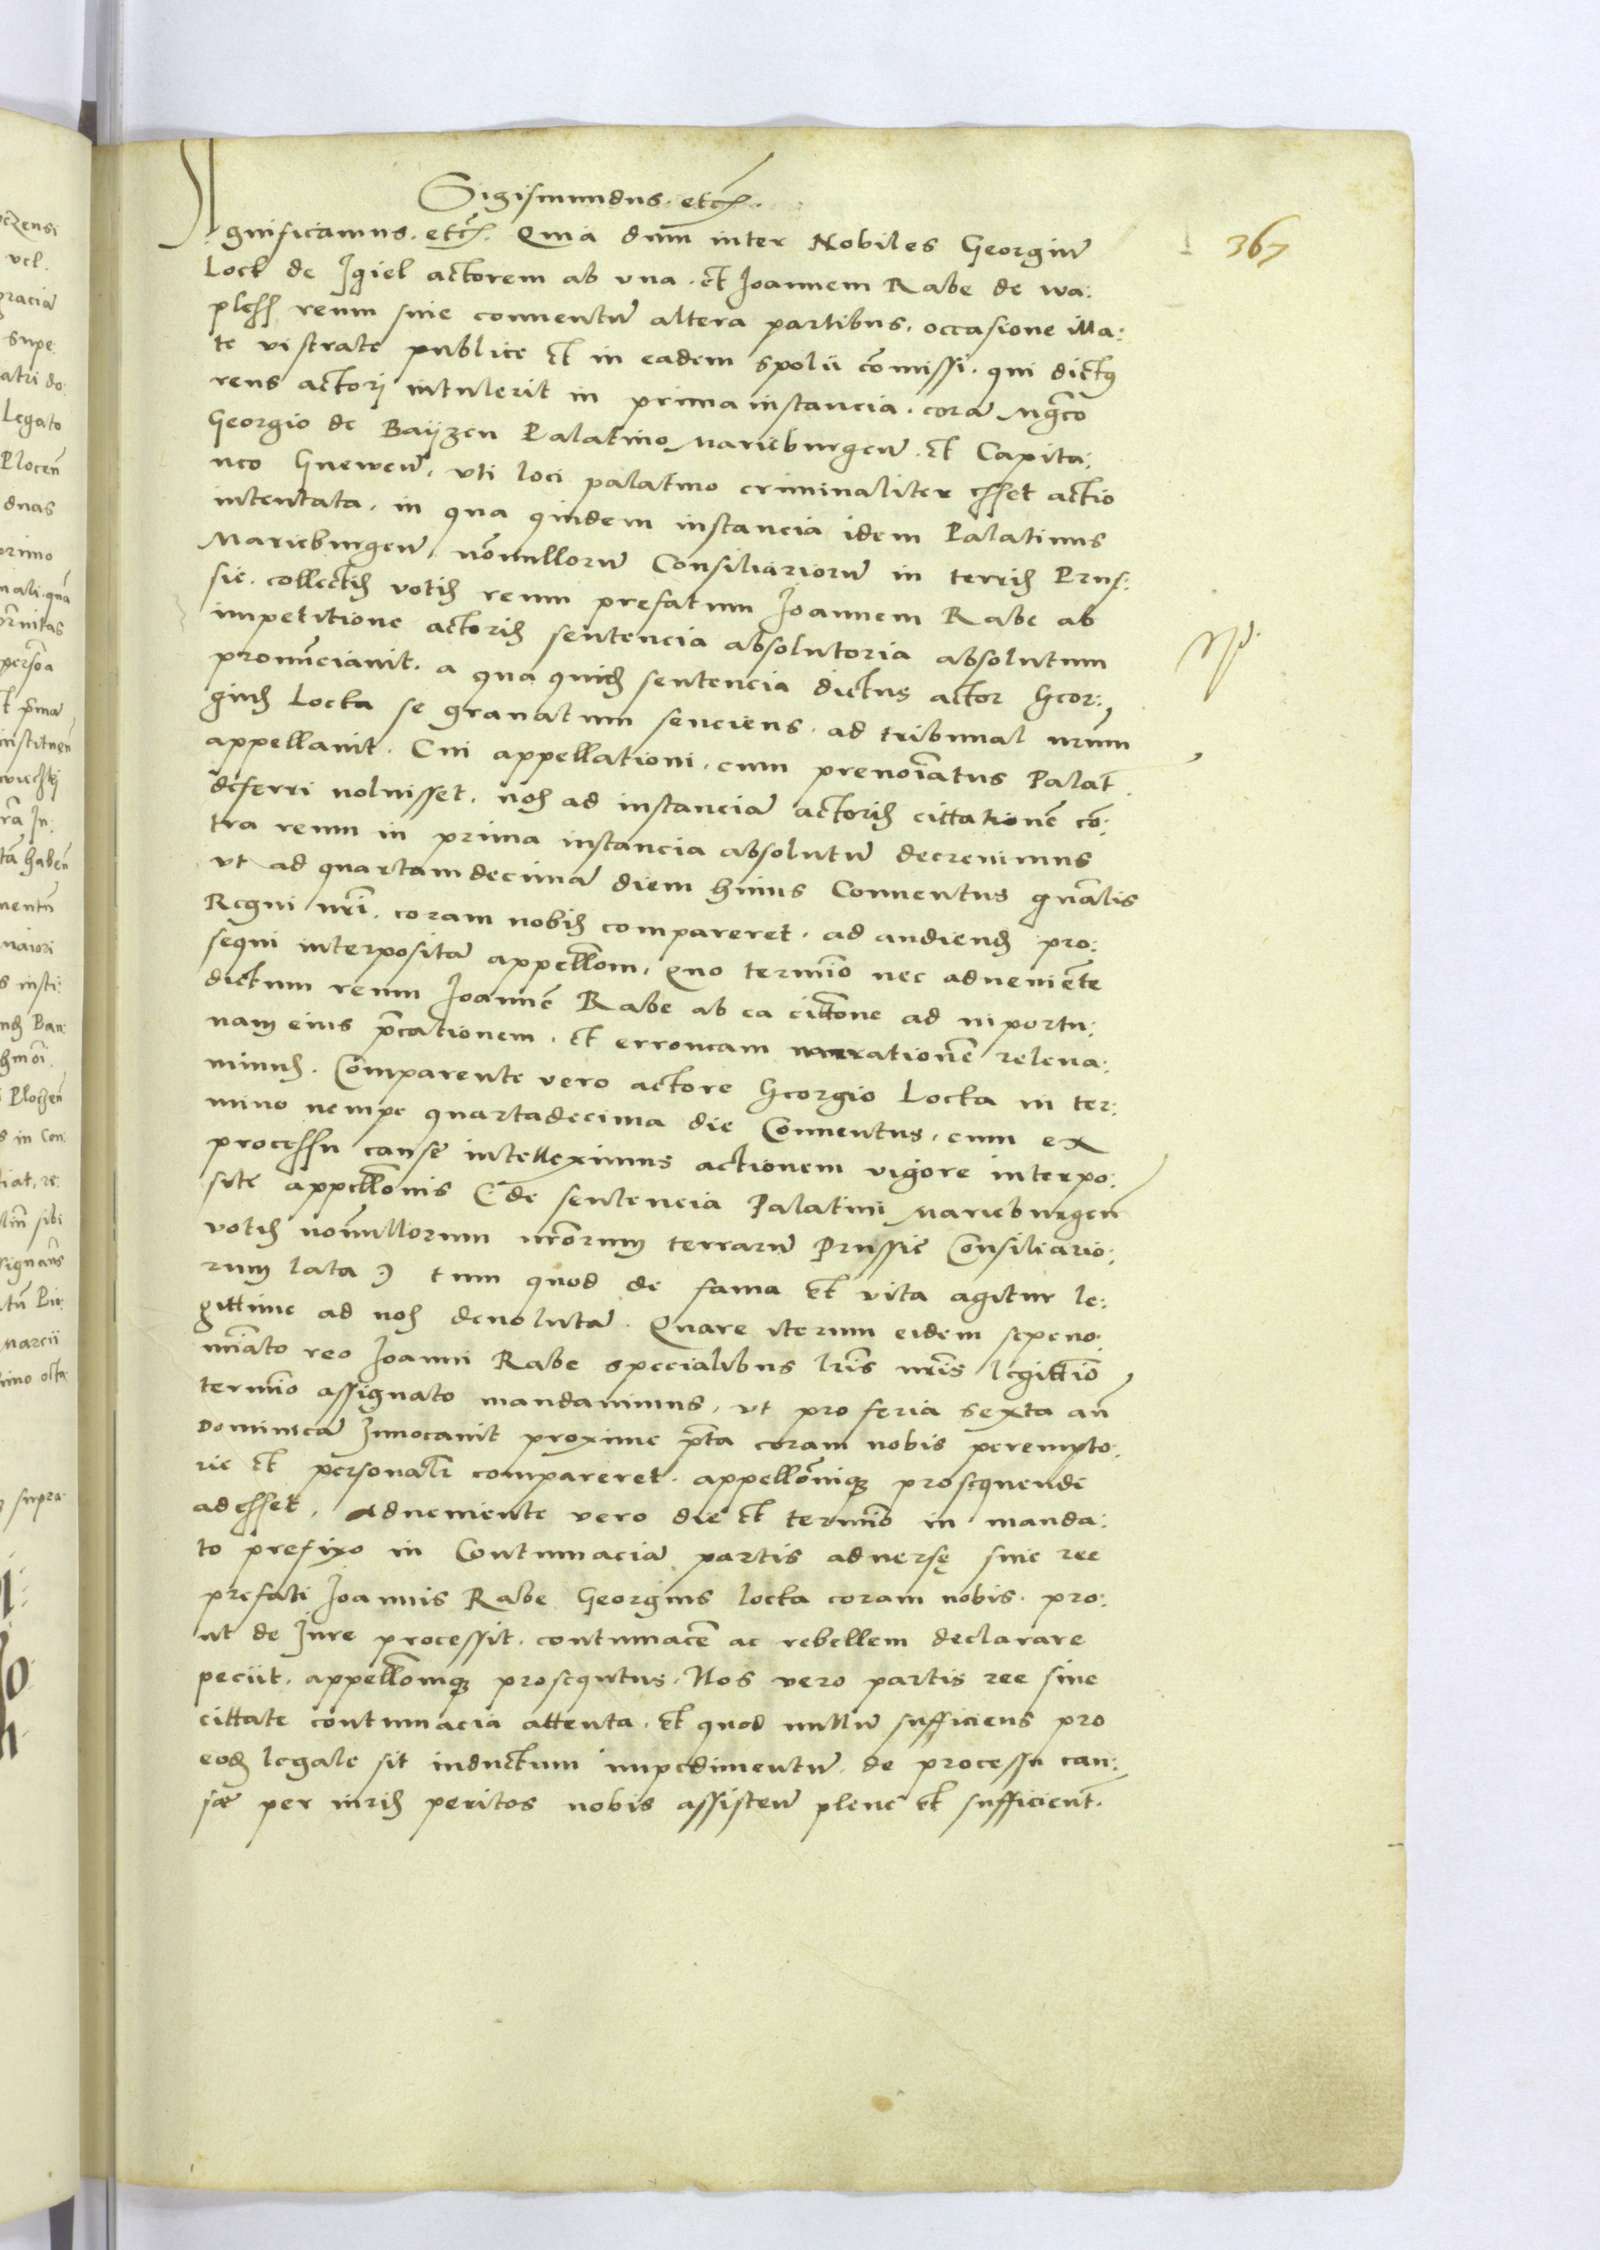 Sigismundus. etc.
367
gnificamus. etc. Quia dum inter Nobiles Georgiū
Lock de Igiel actorem ab vna. et Joannem Rabe de wa:
plesß reum siue conuentū altera partibus. occasione illa:
te vi strate publice et in eadem spolii cōmissi. qui dictꝯ
reus actorj intulerit in prima instancia. corā Mgco
Georgio de Baijzen Palatino Marieburgeñ. et Capita:
neo Gneweñ. vti loci palatino criminaliter esset actio
intentata. in qua quidem instancia idem Palatinus
Marieburgeñ. nōnullorū Consiliariorū in terris Prus:
sie. collectis votis reum prefatum Joannem Rabe ab
impetitione actoris sentencia absolutoria absolutum
pronūnciauit. a qua quidē sentencia dictus actor Geor:
gius Locka se grauatum senciens. ad tribunal nrum
appellauit. Cui appellationi. cum prenoiatus Palat.
deferri noluisset. nos ad instanciā actoris cittationē cō:
tra reum in prima instancia absolutū decreuimus
vt ad quartamdecimā diem huius Conuentus gnalis
Regni nri. coram nobis compareret. ad audiend pro:
sequi interpositā appellom. Quo termīo nec adueniēte
dictum reum Joannē Rabe ab ea cittone ad importu:
nam eius pcationem. et erroneam narrationē releua:
uimus. Comparente vero actore Georgio Locka in ter:
mino nempe quartadecima die Conuentus. cum ex
processu cause intelleximus actionem vigore interpo:
site appellonis (de sentencia Palatini Marieburgeñ
votis nonnullorum nrorum terrarū Prussie Consiliario:
rum lata) tum quod de fama et vita agitur le:
gittime ad nos deuolutā. Quare iterum eidem sepeno:
miato reo Joanni Rabe specialibus lris nris legittio
termīo assignato mandauimus. vt pro feria sexta añ
Dominicā Inuocauit proxime pta coram nobis perempto:
rie et personalr compareret. appellōniqꝫ prosequende
adesset. adueniente vero die et termīo in manda:
to prefixo in Contumaciā partis aduersę siue ree
prefati Joannis Rabe Georgius Locka coram nobis. pro:
ut de Jure processit. contumacē ac rebellem declarare
peciit. appellomqꝫ prosequtus. Nos vero partis ree siue
cittate contumacia attenta. et quod nullū sufficiens pro
eodē legale sit inductum impedimentū. de processu cau:
sæ per iuris peritos nobis assisteñ plene et sufficient.